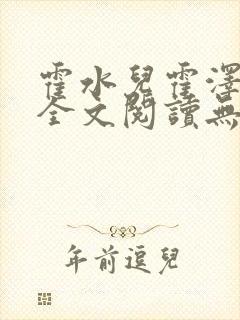 霍水兒霍澤
全文閱讀無
年前逗兒